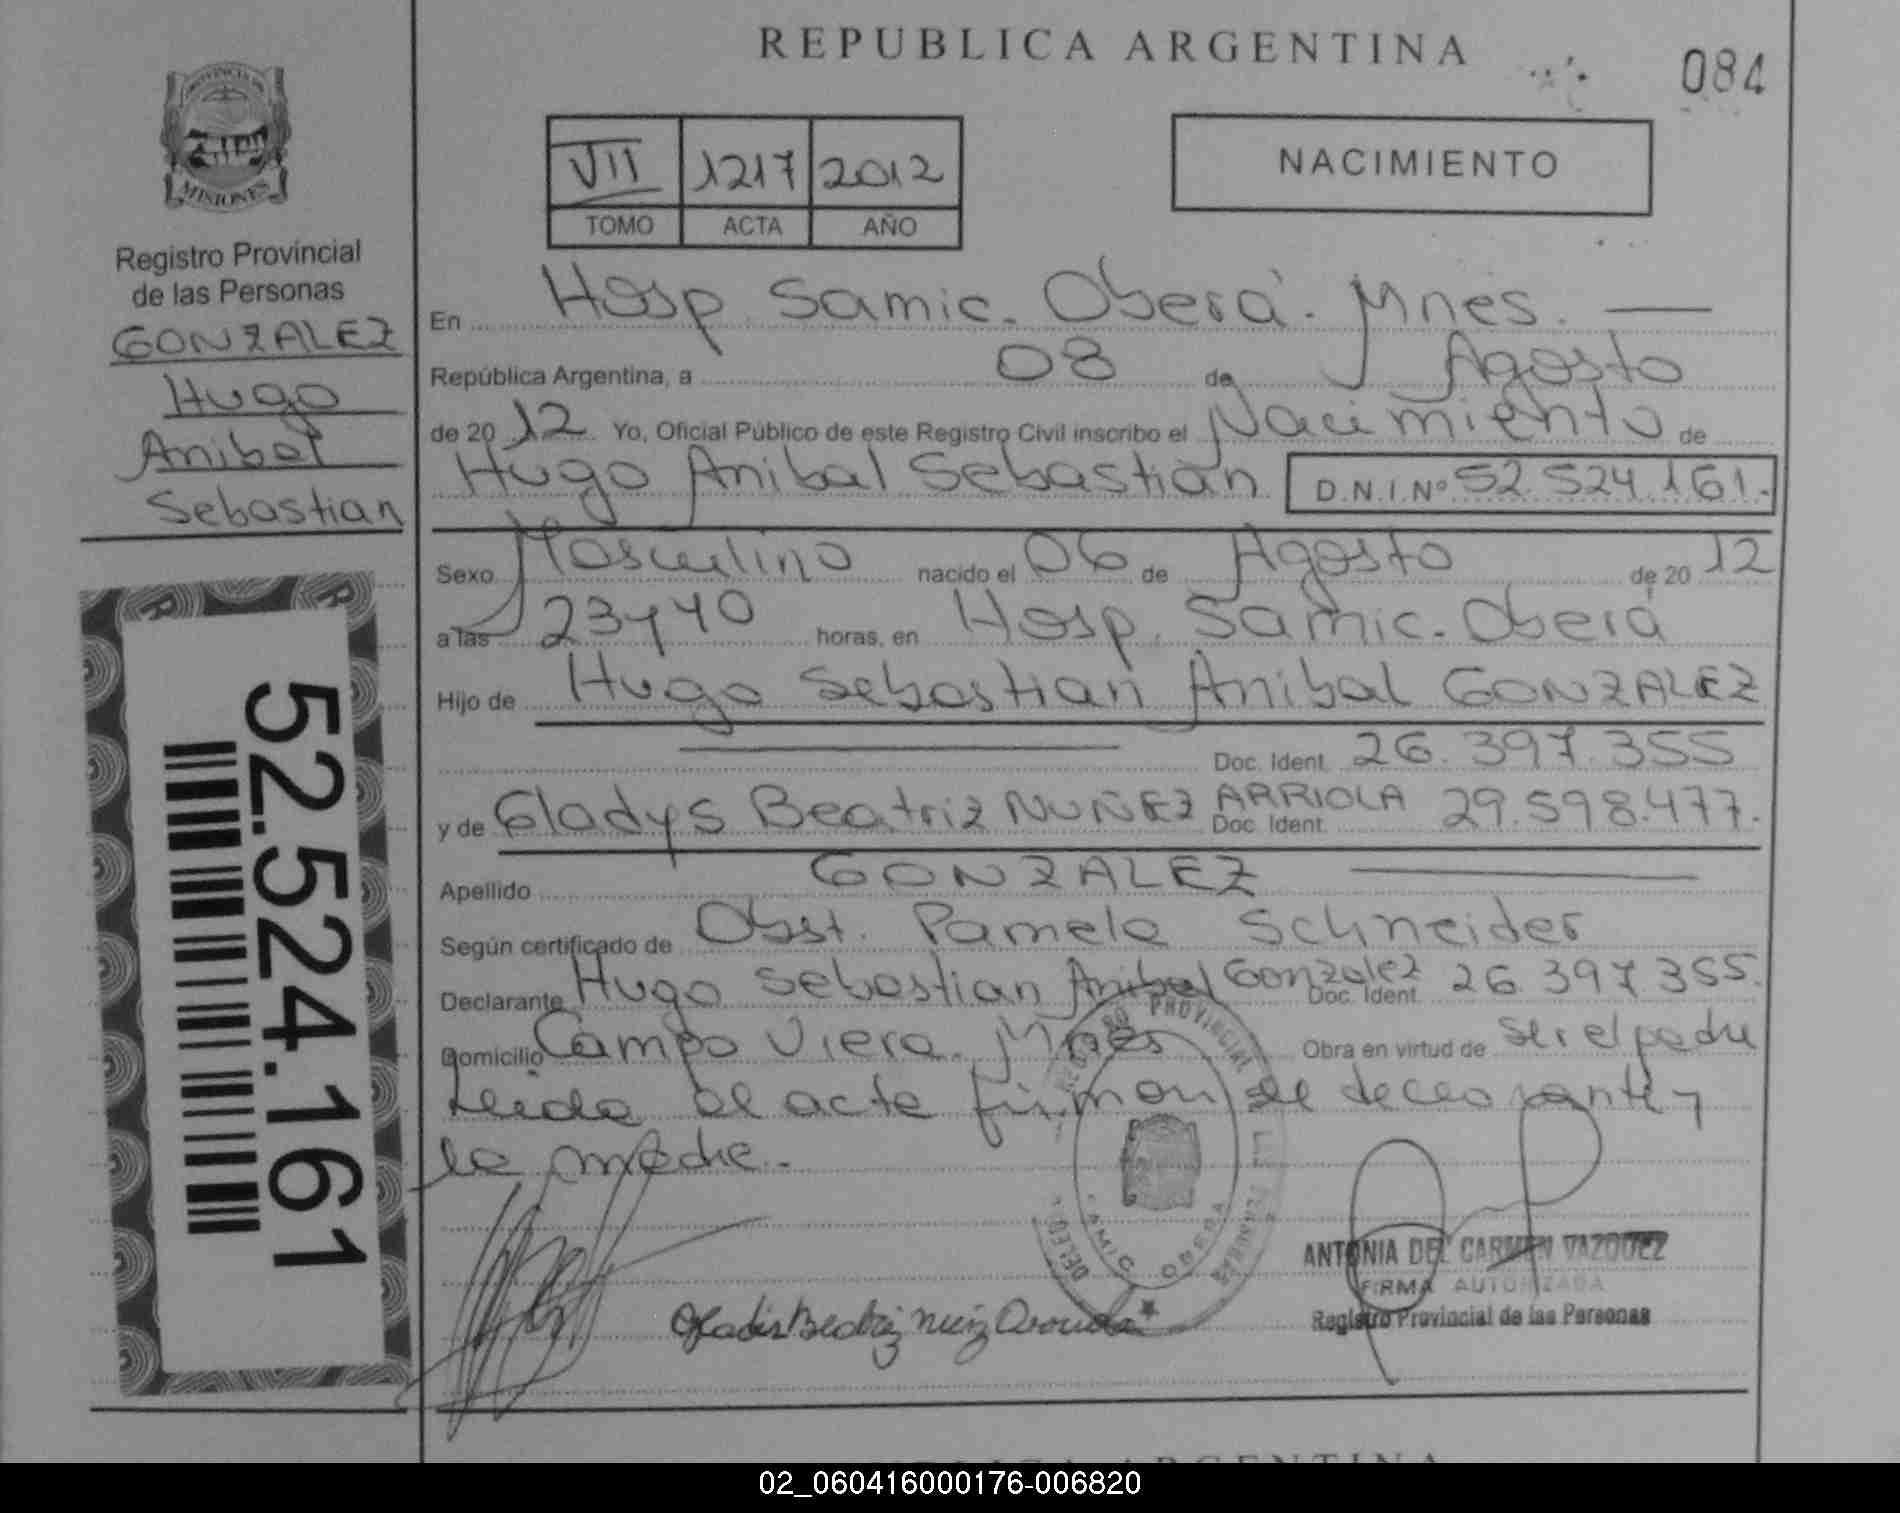 REPUBLICA ARGENTINA
084
PROVINCIA DE
MISIONES
Registro Provincial
de las Personas
GONZALEZ
Hugo
Anibal
Sebastian
52.524.161
VII 1217 2012
TOMO ACTA AÑO
NACIMIENTO
En Hosp Samic. Oberá. Mnes.
República Argentina, a 08 de Agosto
de 20 12 Yo, Oficial Público de este Registro Civil inscribo el Nacimiento de
Hugo Anibal Sebastián D.N.I.Nº 52 524.161.
Sexo Masculino nacido el 06 de Agosto de 20 12
a las 23y40 horas, en Hosp. Samic. Oberá
Hijo de Hugo Sebastian Anibal GONZALEZ
Doc. Ident. 26.397.355
y de Gladys Beatriz NUÑEZ ARRIOLA Doc. Ident. 29.598.477.
Apellido GONZALEZ
Según certificado de Obst. Pamela Schneider
Declarante Hugo Sebastian Anibal Gonzalez Doc. Ident. 26.397.355.
Domicilio Campo Viera. Mnes Obra en virtud de ser el padre
Leida el acta firman el declarante y
la madre.
REGISTRO PROVINCIAL DE LAS PERSONAS
SAMIC OBERA
ANTONIA DEL CARMEN VAZQUEZ
FIRMA AUTORIZADA
Registro Provincial de las Personas
02_060416000176-006820